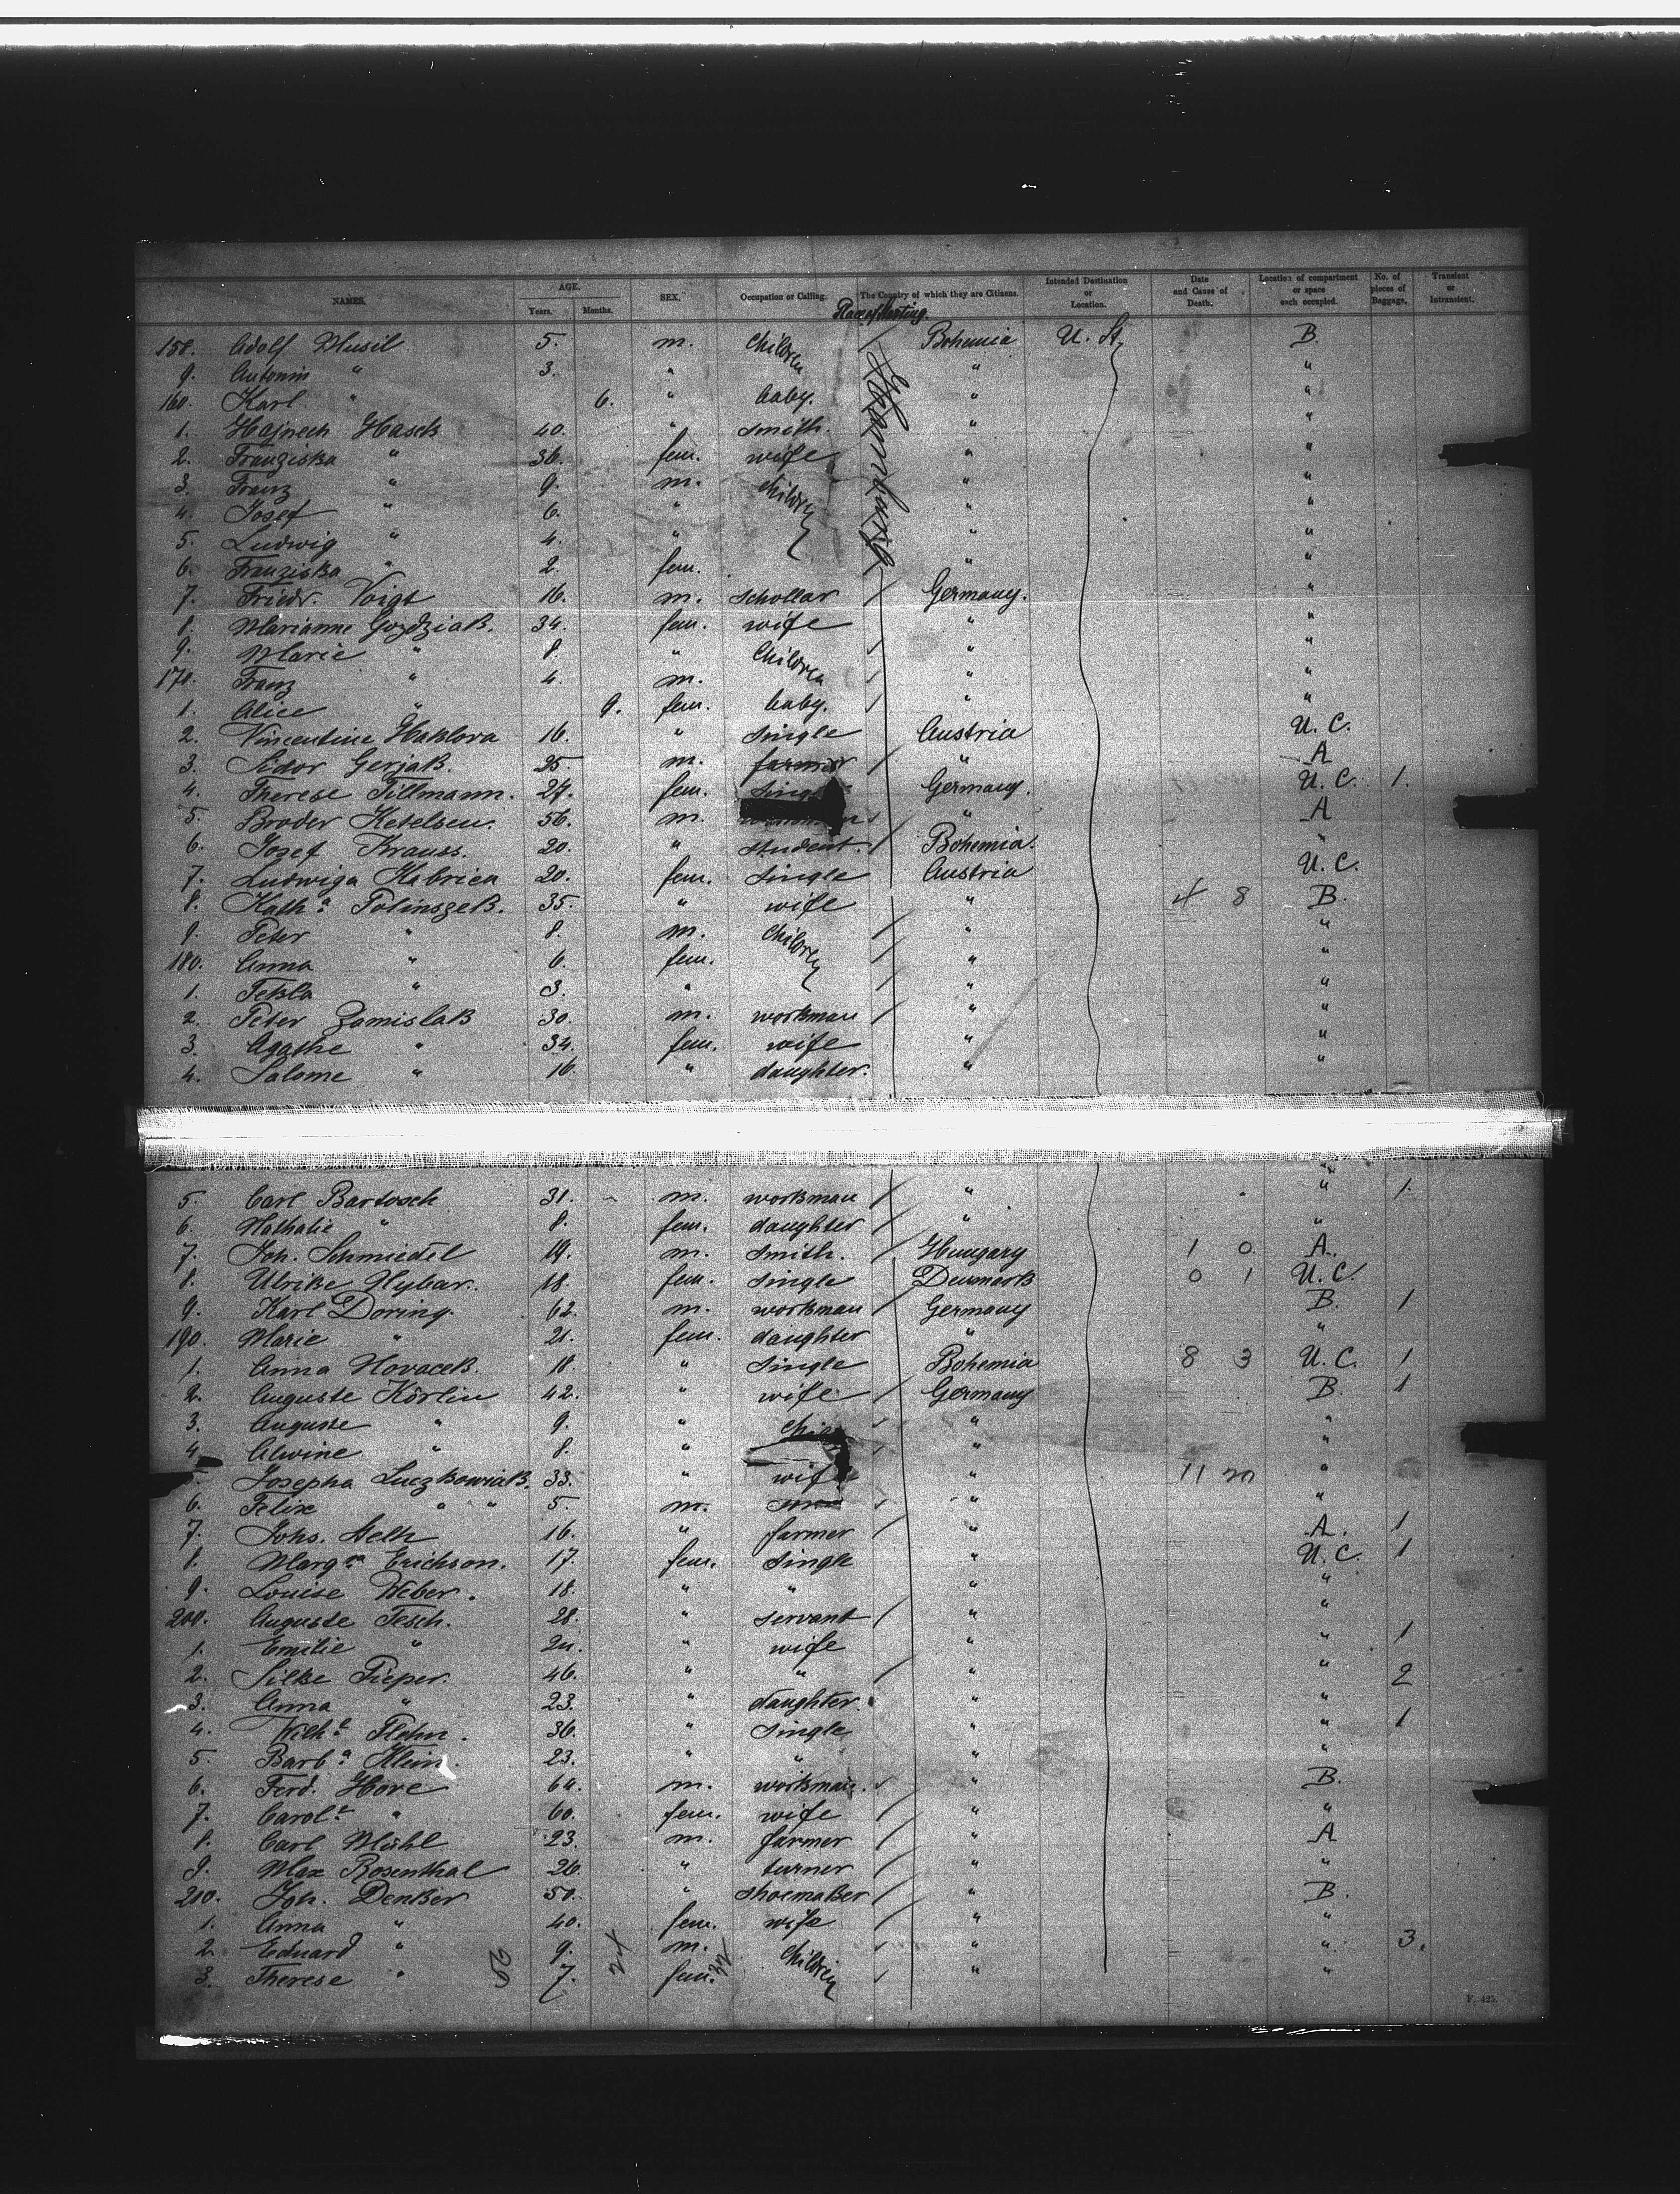 NAMES. AGE. Years. Months. SEX. Occupation or Calling. The Country of which they are Citizens. Intended Destination or Location. Date and Cause of Death. Location of compartment or space each occupied. No. of pieces of Baggage. Transient or Intransient.
Place of starting.
Hamburg
158. Adolf Musil 5. m. Children / Bohemia U. St. B.
9. Antonin " 3. " " "
160. Karl " 6. " baby. " "
1. Hajnech Hasek 40. " smith. " "
2. Franziska " 36. fem. wife " "
3. Franz " 9. m. children " "
4. Josef " 6. " " "
5. Ludwig " 4. " " "
6. Franziska " 2. fem. " "
7. Friedr. Voigt 16. m. schollar / Germany. "
8. Marianne Gozdziak. 34. fem. wife " "
9. Marie " 8. " Children / " "
170. Franz " 4. m. / " "
1. Alice " 9. fem. baby. / " "
2. Vincentine Haklova 16. " single Austria U. C.
3. Sidor Gerjak. 25 m. farmer / " A
4. Therese Tillmann. 27. fem. Germany. U. C. 1.
5. Broder Ketelsen. 56. m. " A
6. Josef Krauss. 20. " student. / Bohemia. "
7. Ludwiga Kabrica 20. fem. single Austria U. C.
8. Kath.a Polinszek. 35. " wife " 4 8 B.
9. Peter " 8. m. Children / " "
180. Anna " 6. fem. / " "
1. Tekla " 3. " / " "
2. Peter Zamislak 30. m. workman / " "
3. Agathe " 34. fem. wife " "
4. Salome " 16. " daughter. " "
5. Carl Bartosch 31. m. workman / " " 1.
6. Nathalie " 8. fem. daughter / " "
7. Joh. Schmiedel 19. m. smith. / Hungary 1 0 A.
8. Ulrike Nybar. 18. fem. single Denmark 0 1 U. C.
9. Karl Doring. 62. m. workman / Germany B. 1
190. Marie " 21. fem. daughter " "
1. Anna Novacek. 18. " single Bohemia 8 3 U. C. 1
2. Auguste Körlin 42. " wife / Germany B. 1
3. Auguste " 9. " " "
4. Alwine " 8. " " "
Josepha Luczkowiak. 33. " wife " 11 "
6. Felix " " 5. m. son " "
7. Johs. 16. " farmer / " A. 1
8. Marg. Erichson. 17. fem. single " U. C. 1
9. Louise Weber. 18. " " " "
200. Auguste Tesch. 28. " servant / " "
1. Emilie " 24. " wife " " 1
2. Silke Pieper. 46. " " / " " 2
3. Anna " 23. " daughter. " "
4. Wilh.e Flehn. 36. " single " " 1
5. Barb.a Klein 23. " " " "
6. Ferd. Hove 64. m. workman. " B.
7. Carol.e " 60. fem. wife / " "
8. Carl Mühl 23. m. farmer / " A
9. Max Rosenthal 26. " turner / " "
210. Joh. Denker 50. " shoemaker / " B.
1. Anna " 40. fem. wife / " "
2. Eduard " 9. m. Children " " 3.
3. Therese " 7. fem. " "
F. 425.